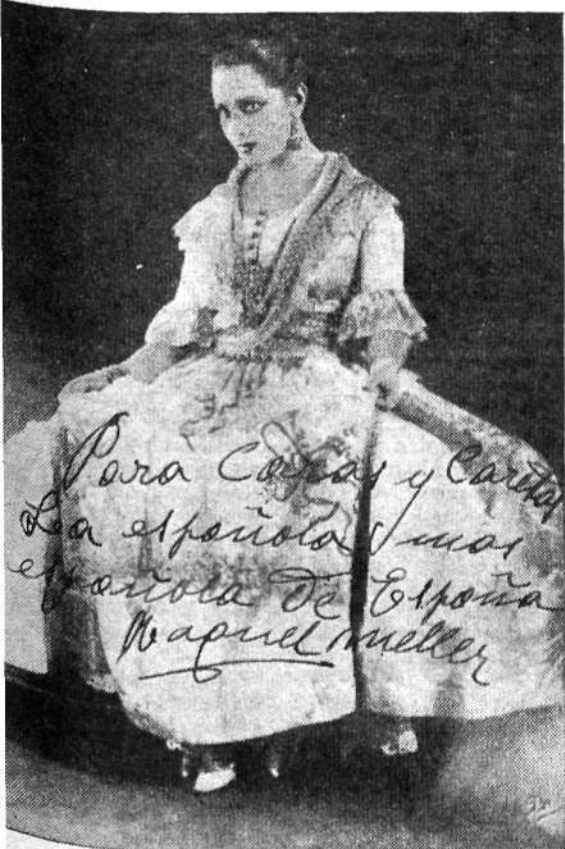 Para Caras y Caretas
La española mas
española de España
Raquel Meller